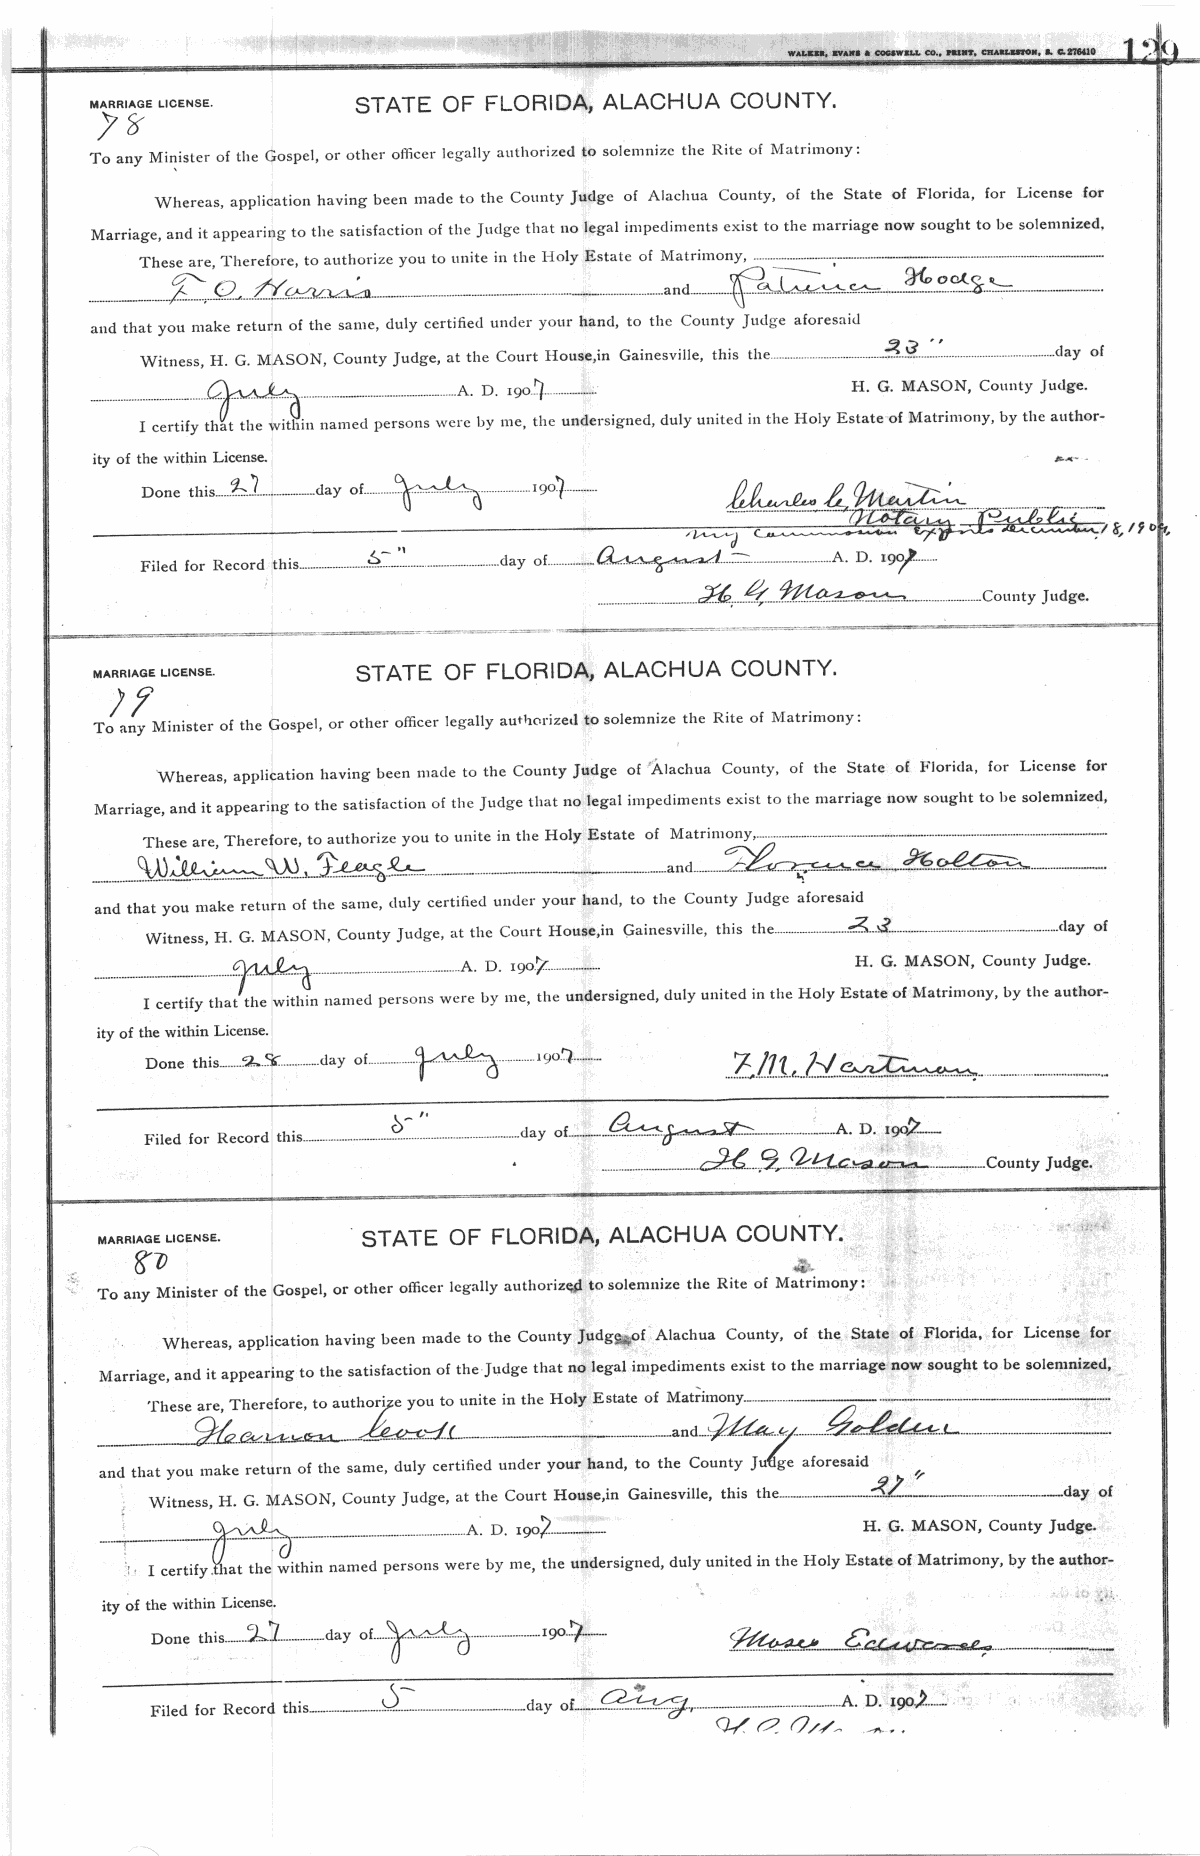 WALKER, EVANS & COGSWELL CO., PRINT, CHARLESTON, S. C. 276410 129
MARRIAGE LICENSE. STATE OF FLORIDA, ALACHUA COUNTY.
78
To any Minister of the Gospel, or other officer legally authorized to solemnize the Rite of Matrimony:
Whereas, application having been made to the County Judge of Alachua County, of the State of Florida, for License for
Marriage, and it appearing to the satisfaction of the Judge that no legal impediments exist to the marriage now sought to be solemnized,
These are, Therefore, to authorize you to unite in the Holy Estate of Matrimony,
F. O. Harris and Patricia Hodge
and that you make return of the same, duly certified under your hand, to the County Judge aforesaid
Witness, H. G. MASON, County Judge, at the Court House, in Gainesville, this the 23" day of
July A. D. 1907 H. G. MASON, County Judge.
I certify that the within named persons were by me, the undersigned, duly united in the Holy Estate of Matrimony, by the author-
ity of the within License.
Done this 27 day of July 1907 Charles C. Martin
Notary Public
my commission expires december 18, 1909,
Filed for Record this 5" day of August A. D. 1907
H. G. Mason County Judge.
MARRIAGE LICENSE. STATE OF FLORIDA, ALACHUA COUNTY.
79
To any Minister of the Gospel, or other officer legally authorized to solemnize the Rite of Matrimony:
Whereas, application having been made to the County Judge of Alachua County, of the State of Florida, for License for
Marriage, and it appearing to the satisfaction of the Judge that no legal impediments exist to the marriage now sought to be solemnized,
These are, Therefore, to authorize you to unite in the Holy Estate of Matrimony,
William W. Feagle and Florence Holton
and that you make return of the same, duly certified under your hand, to the County Judge aforesaid
Witness, H. G. MASON, County Judge, at the Court House, in Gainesville, this the 23 day of
July A. D. 1907 H. G. MASON, County Judge.
I certify that the within named persons were by me, the undersigned, duly united in the Holy Estate of Matrimony, by the author-
ity of the within License.
Done this 28 day of July 1907 F. M. Hartman
Filed for Record this 5" day of August A. D. 1907
H. G. Mason County Judge.
MARRIAGE LICENSE. STATE OF FLORIDA, ALACHUA COUNTY.
80
To any Minister of the Gospel, or other officer legally authorized to solemnize the Rite of Matrimony:
Whereas, application having been made to the County Judge of Alachua County, of the State of Florida, for License for
Marriage, and it appearing to the satisfaction of the Judge that no legal impediments exist to the marriage now sought to be solemnized,
These are, Therefore, to authorize you to unite in the Holy Estate of Matrimony
Harmon Cook and May Golden
and that you make return of the same, duly certified under your hand, to the County Judge aforesaid
Witness, H. G. MASON, County Judge, at the Court House, in Gainesville, this the 27" day of
July A. D. 1907 H. G. MASON, County Judge.
I certify that the within named persons were by me, the undersigned, duly united in the Holy Estate of Matrimony, by the author-
ity of the within License.
Done this 27 day of July 1907 Moses Edwards
Filed for Record this 5 day of Aug. A. D. 1907